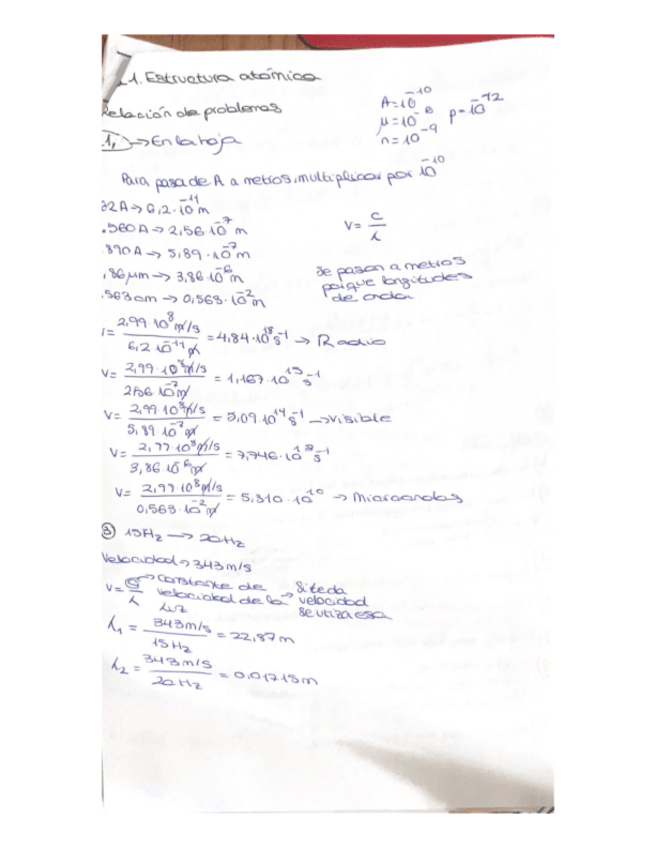 1. Estructura atómica
Relación de problemas
A=10^-10
μ=10^-6 p=10^-12
n=10^-9
1, → En la hoja
Para pasa de A a metros, multiplicar por 10^-10
62A → 6,2·10^-11 m
.560A → 2,56·10^-7 m
.890A → 5,89·10^-7 m
,86μm → 3,86·10^-6 m
.563cm → 0,563·10^-2 m
V= c/λ
Se pasan a metros
porque longitudes
de onda
= 2,99·10^8 m/s / 6,2·10^-11 m = 4,84·10^18 s^-1 → Radio
V= 2,99·10^8 m/s / 256·10^-7 m = 1,167·10^15 s^-1
V= 2,99·10^8 m/s / 5,89·10^-7 m = 5,09·10^14 s^-1 → visible
V= 2,99·10^8 m/s / 3,86·10^-6 m = 7,746·10^13 s^-1
V= 2,99·10^8 m/s / 0,563·10^-2 m = 5,310·10^10 → Microondas
③ 15Hz → 20Hz
Velocidad → 343m/s
V= c/λ → Constante de velocidad de la luz → Si te da velocidad se utiza esa
λ1 = 343m/s / 15Hz = 22,87m
λ2 = 343m/s / 20Hz = 0,01715m